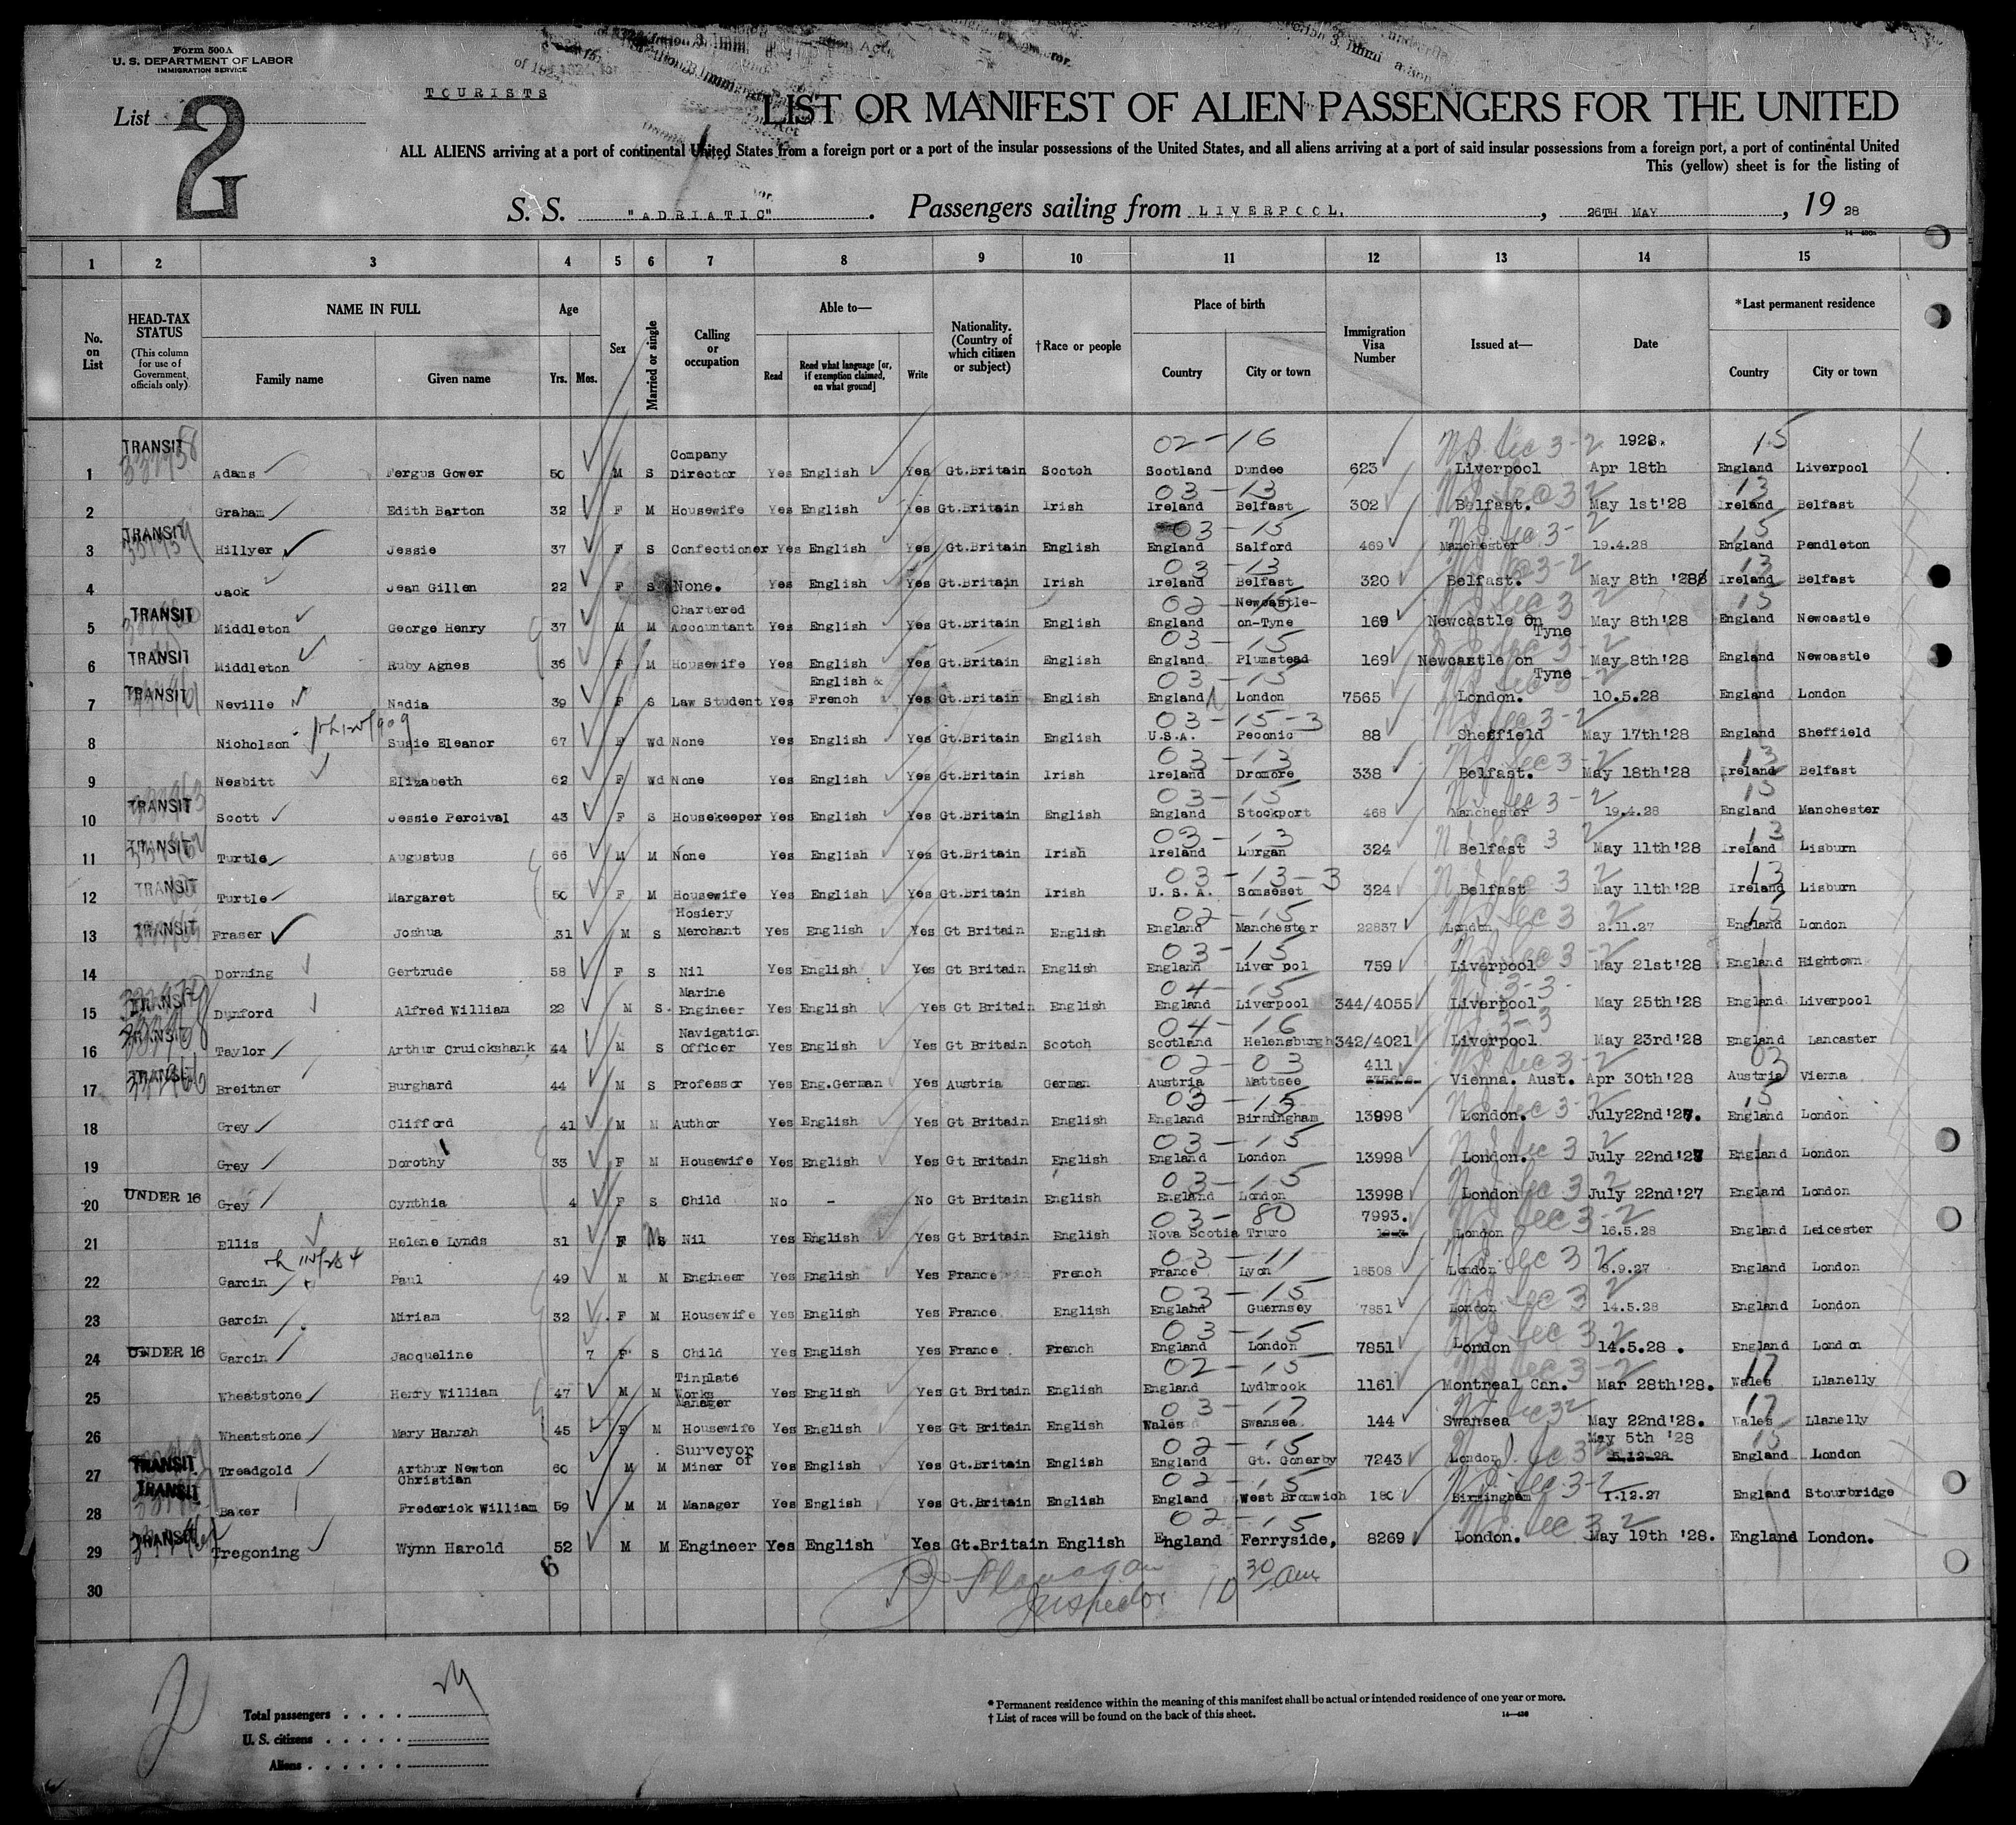 Form 500A
U. S. DEPARTMENT OF LABOR
IMMIGRATION SERVICE
List 2
TOURISTS
LIST OR MANIFEST OF ALIEN PASSENGERS FOR THE UNITED
ALL ALIENS arriving at a port of continental United States from a foreign port or a port of the insular possessions of the United States, and all aliens arriving at a port of said insular possessions from a foreign port, a port of continental United
This (yellow) sheet is for the listing of
S. S. "ADRIATIC". Passengers sailing from LIVERPOOL, 26TH MAY, 1928
1 2 3 4 5 6 7 8 9 10 11 12 13 14 15
No. on List
HEAD-TAX STATUS (This column for use of Government officials only)
NAME IN FULL Family name Given name
Age Yrs. Mos.
Sex
Married or single
Calling or occupation
Able to— Read Read what language [or, if exemption claimed, on what ground] Write
Nationality. (Country of which citizen or subject)
†Race or people
Place of birth Country City or town
Immigration Visa Number
Issued at—
Date
*Last permanent residence Country City or town
1 TRANSIT Adams Fergus Gower 50 M S Company Director Yes English Yes Gt.Britain Scotch 02-16 Scotland Dundee 623 Liverpool 1928. Apr 18th 15 England Liverpool
2 Graham Edith Barton 32 F M Housewife Yes English Yes Gt.Britain Irish 03-13 Ireland Belfast 302 Belfast. May 1st'28 13 Ireland Belfast
3 TRANSIT Hillyer Jessie 37 F S Confectioner Yes English Yes Gt.Britain English 03-15 England Salford 469 Manchester 19.4.28 15 England Pendleton
4 Jack Jean Gillen 22 F S None. Yes English Yes Gt.Britain Irish 03-13 Ireland Belfast 320 Belfast. May 8th '28 13 Ireland Belfast
5 TRANSIT Middleton George Henry 37 M M Chartered Accountant Yes English Yes Gt.Britain English 02-15 England Newcastle-on-Tyne 169 Newcastle on Tyne May 8th'28 15 England Newcastle
6 TRANSIT Middleton Ruby Agnes 36 F M Housewife Yes English Yes Gt.Britain English 03-15 England Plumstead 169 Newcastle on Tyne May 8th'28 England Newcastle
7 TRANSIT Neville Nadia 39 F S Law Student Yes English & French Yes Gt.Britain English 03-15 England London 7565 London. 10.5.28 England London
8 Nicholson Susie Eleanor 67 F Wd None Yes English Yes Gt.Britain English 03-15-3 U.S.A. Peconic 88 Sheffield May 17th'28 England Sheffield
9 Nesbitt Elizabeth 62 F Wd None Yes English Yes Gt.Britain Irish 03-13 Ireland Dromore 338 Belfast. May 18th'28 13 Ireland Belfast
10 TRANSIT Scott Jessie Percival 43 F S Housekeeper Yes English Yes Gt.Britain English 03-15 England Stockport 468 Manchester 19.4.28 15 England Manchester
11 TRANSIT Turtle Augustus 66 M M None Yes English Yes Gt.Britain Irish 03-13 Ireland Lurgan 324 Belfast May 11th'28 13 Ireland Lisburn
12 TRANSIT Turtle Margaret 50 F M Housewife Yes English Yes Gt.Britain Irish 03-13-3 U. S. A. Somseset 324 Belfast May 11th'28 13 Ireland Lisburn
13 TRANSIT Fraser Joshua 31 M S Hosiery Merchant Yes English Yes Gt Britain English 02-15 England Manchester 22837 London, 2.11.27 15 England London
14 Dorning Gertrude 58 F S Nil Yes English Yes Gt Britain English 03-15 England Liver pol 759 Liverpool May 21st'28 England Hightown
15 TRANSIT Dunford Alfred William 22 M S. Marine Engineer Yes English Yes Gt Britain English 04-15 England Liverpool 344/4055 Liverpool May 25th'28 England Liverpool
16 TRANSIT Taylor Arthur Cruickshank 44 M S Navigation Officer Yes English Yes Gt Britain Scotch 04-16 Scotland Helensburgh 342/4021 Liverpool May 23rd'28 England Lancaster
17 TRANSIT Breitner Burghard 44 M S Professor Yes Eng.German Yes Austria German 02-03 Austria Mattsee 411 Vienna. Aust. Apr 30th'28 03 Austria Vienna
18 Grey Clifford 41 M M Author Yes English Yes Gt Britain English 03-15 England Birmingham 13998 London. July22nd'27. 15 England London
19 Grey Dorothy 33 F M Housewife Yes English Yes Gt Britain English 03-15 England London 13998 London. July 22nd'27 England London
20 UNDER 16 Grey Cynthia 4 F S Child No - No Gt Britain English 03-15 England London 13998 London July 22nd'27 England London
21 Ellis Helene Lynds 31 F M Nil Yes English Yes Gt Britain English 03-80 Nova Scotia Truro 7993. London 16.5.28 England Leicester
22 Garcin Paul 49 M M Engineer Yes English Yes France French 03-11 France Lyon 18508 London 8.9.27 England London
23 Garcin Miriam 32 F M Housewife Yes English Yes France English 03-15 England Guernsey 7851 London 14.5.28 England London
24 UNDER 16 Garcin Jacqueline 7 F S Child Yes English Yes France French 03-15 England London 7851 London 14.5.28 . England London
25 Wheatstone Henry William 47 M M Tinplate Works Manager Yes English Yes Gt Britain English 02-15 England Lydbrook 1161 Montreal Can. Mar 28th'28. 17 Wales Llanelly
26 Wheatstone Mary Hannah 45 F M Housewife Yes English Yes Gt Britain English 03-17 Wales Swansea 144 Swansea May 22nd'28. 17 Wales Llanelly
27 TRANSIT Treadgold Arthur Newton Christian 60 M M Surveyor of Miner Yes English Yes Gt.Britain English 02-15 England Gt. Gonerby 7243 London May 5th '28 15 England London
28 TRANSIT Baker Frederick William 59 M M Manager Yes English Yes Gt.Britain English 02-15 England West Bromwich 180 Birmingham 1.12.27 England Stourbridge
29 TRANSIT Tregoning Wynn Harold 52 M M Engineer Yes English Yes Gt.Britain English 02-15 England Ferryside, 8269 London. May 19th '28. England London.
30
6
Flanagan
Inspector 10 30 am
2
Total passengers . . . .
U. S. citizens . . . . .
Aliens . . . . . .
* Permanent residence within the meaning of this manifest shall be actual or intended residence of one year or more.
† List of races will be found on the back of this sheet.